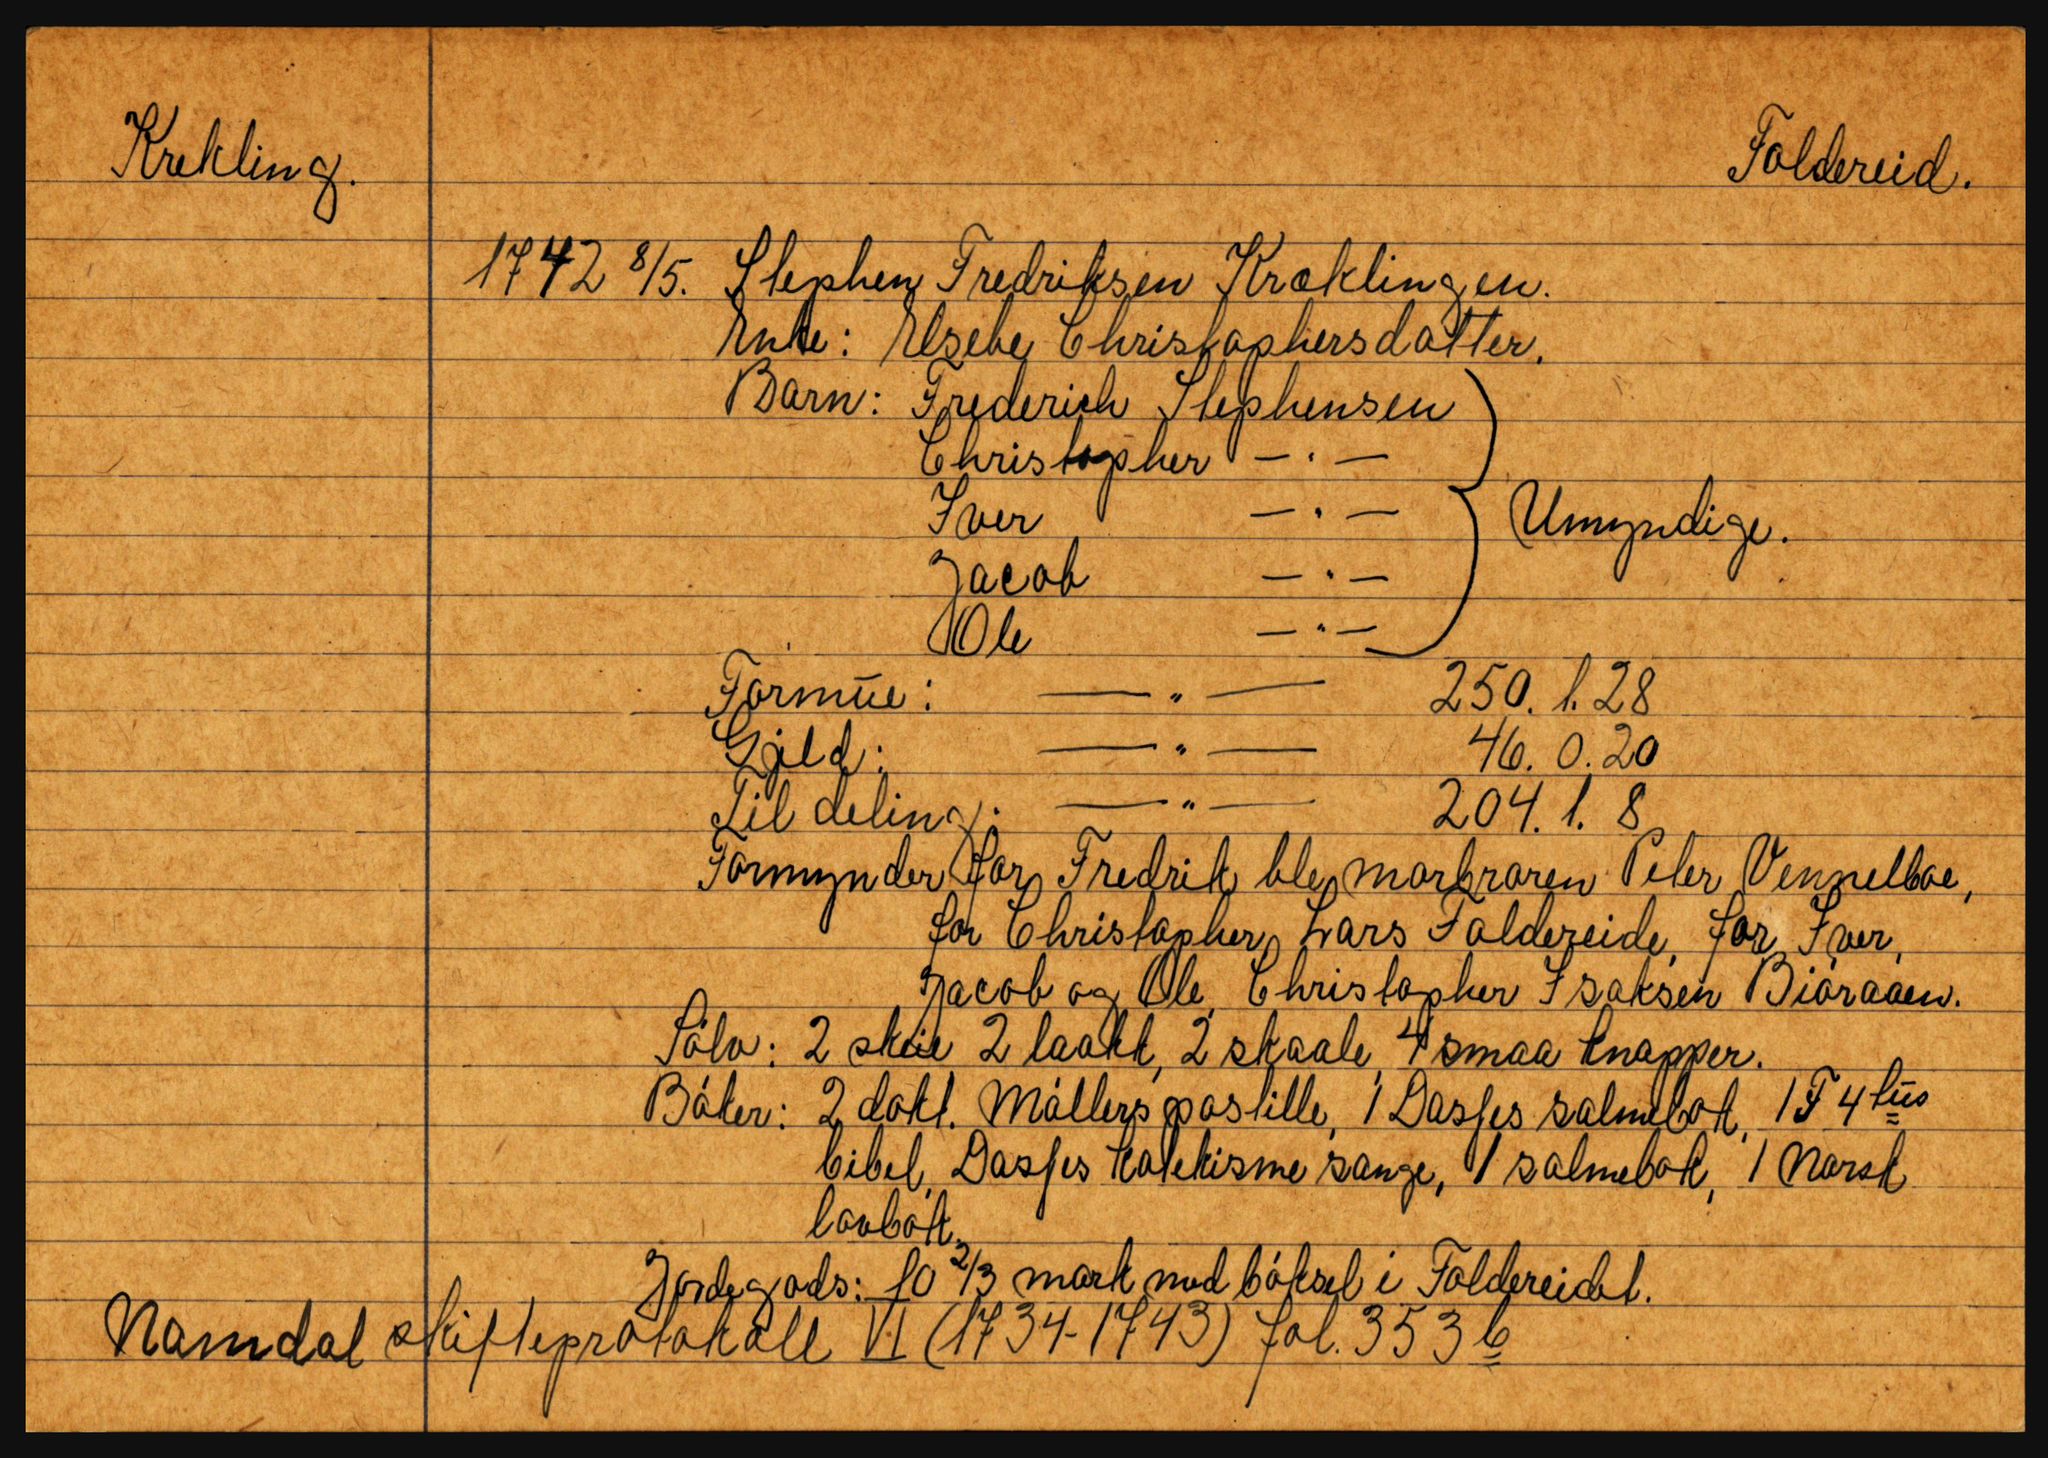 Krekling.
Foldereid.
1742 8/5. Stephen Fredriksen Kræklingen.
Enke: Elsebe Christophersdatter.
Barn: Frederich Stephensen
Christopher — " —
Iver — " —
Jacob — " —
Ole — " —
Umyndige.
Formue: — " — 250. 1. 28
Gjeld: — " — 46. 0. 20
Til deling: — " — 204. 1. 8
Formynder for Fredrik ble morbroren Peter Vennelboe,
for Christopher, Lars Foldereide, for Iver,
Jacob og Ole, Christopher Isaksen Biöraaen.
Sölv: 2 skeie 2 laakk, 2 skaale, 4 smaa knapper.
Böker: 2 dokt. Möllers postille, 1 Dasses salmebok, 1 F 4tus
bibel, Dasses katekisme sange, 1 salmebok, 1 Norsk
lovbok.
Jordegods: 10 2/3 mark med böksel i Foldereidet.
Namdal skifteprotokoll VI (1734-1743) fol. 353 b